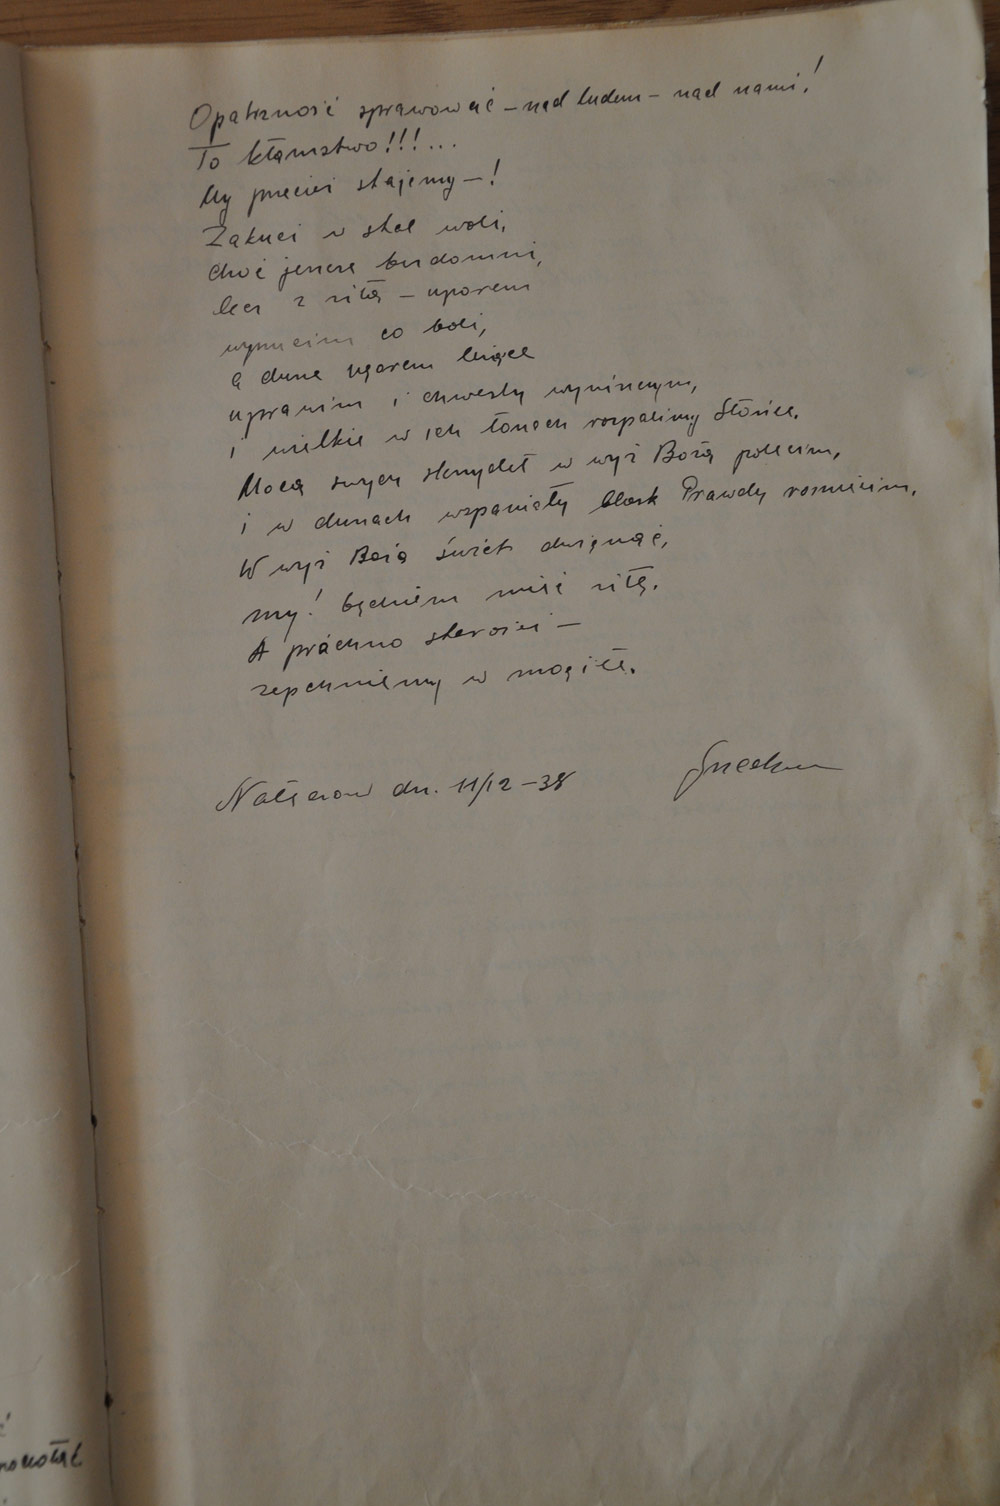 Opatrzność sprawować – nad ludem – nad nami!
To kłamstwo!!!...
My przecież stajemy –!
Zakuci w stal woli,
choć jeszcze bezdomni,
lecz z siłą – uporem
wyrzucim co boli,
a dusze ugorem leżące
uprawim i chwasty wyniszczym,
i wielkie w ich łonach rozpalimy Słońce.
Mocą swych skrzydeł w wyż Bożą polecim,
i w duszach wspaniały blask Prawdy rozniecim.
W wyż Bożą świat dźwignąć,
my! będziem mieć siłę.
A próchno starości –
zepchniemy w mogiłę.
Nałęczów dn. 11/12 – 38